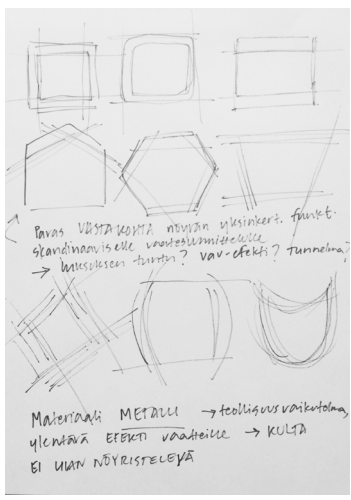 Paras VASTAKOHTA nöyrän yksinkert. funkt.
skandinaaviselle vaatesuunnittelulle
→ luksuksen tuntu? vav-efekti? tunnelma?
Materiaali METALLI → teollisuusvaikutelma,
ylentävä EFEKTI vaatteille → KULTA
EI LIIAN NÖYRISTELEVÄ